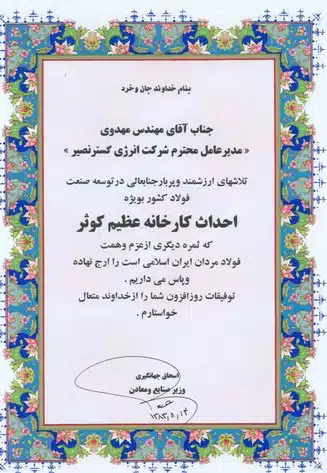 بنام خداوند جان و خرد
جناب آقای مهندس مهدوی
« مدیرعامل محترم شرکت انرژی گسترنصیر »
تلاشهای ارزشمند و پربار جنابعالی در توسعه صنعت
فولاد کشور بویژه
احداث کارخانه عظیم کوثر
که ثمره دیگری از عزم و همت
فولاد مردان ایران اسلامی است را ارج نهاده
و پاس می داریم .
توفیقات روزافزون شما را از خداوند متعال
خواستارم .
اسحاق جهانگیری
وزیر صنایع و معادن